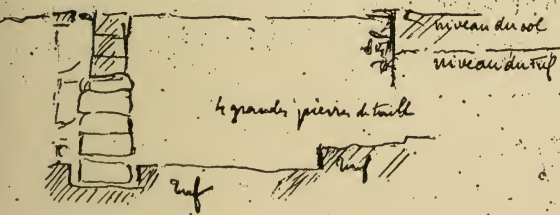 niveau du sol
niveau du tuf
4 grandes pierres de taille
tuf
tuf